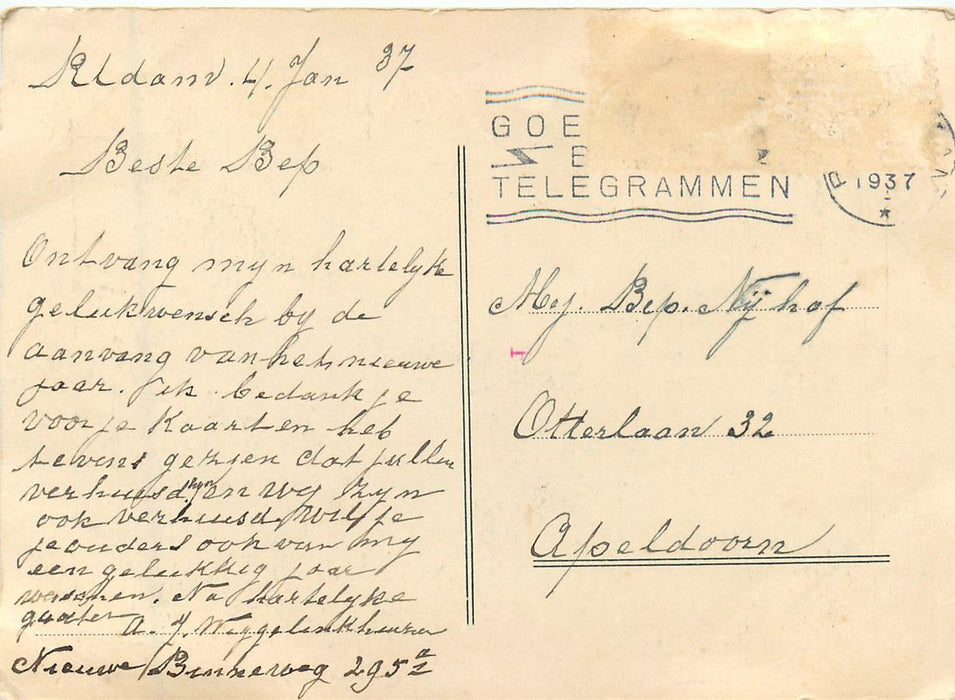 R'dam. 4. Jan 37
Beste Bep
Ontvang myn hartelyke
gelukwensch by de
aanvang van het nieuwe
jaar. Ik bedank je
voor je Kaart en heb
tevens gezien dat jullie
verhuisd zyn en wy zyn
ook verhuisd. Wil je
je ouders ook van my
een gelukkig jaar
wenschen. Na hartelyke
groeten A. J.
Nieuwe Binneweg 295
GOE
E
TELEGRAMMEN
1937
Mej. Bep. Nijhof
Otterlaan 32
Apeldoorn